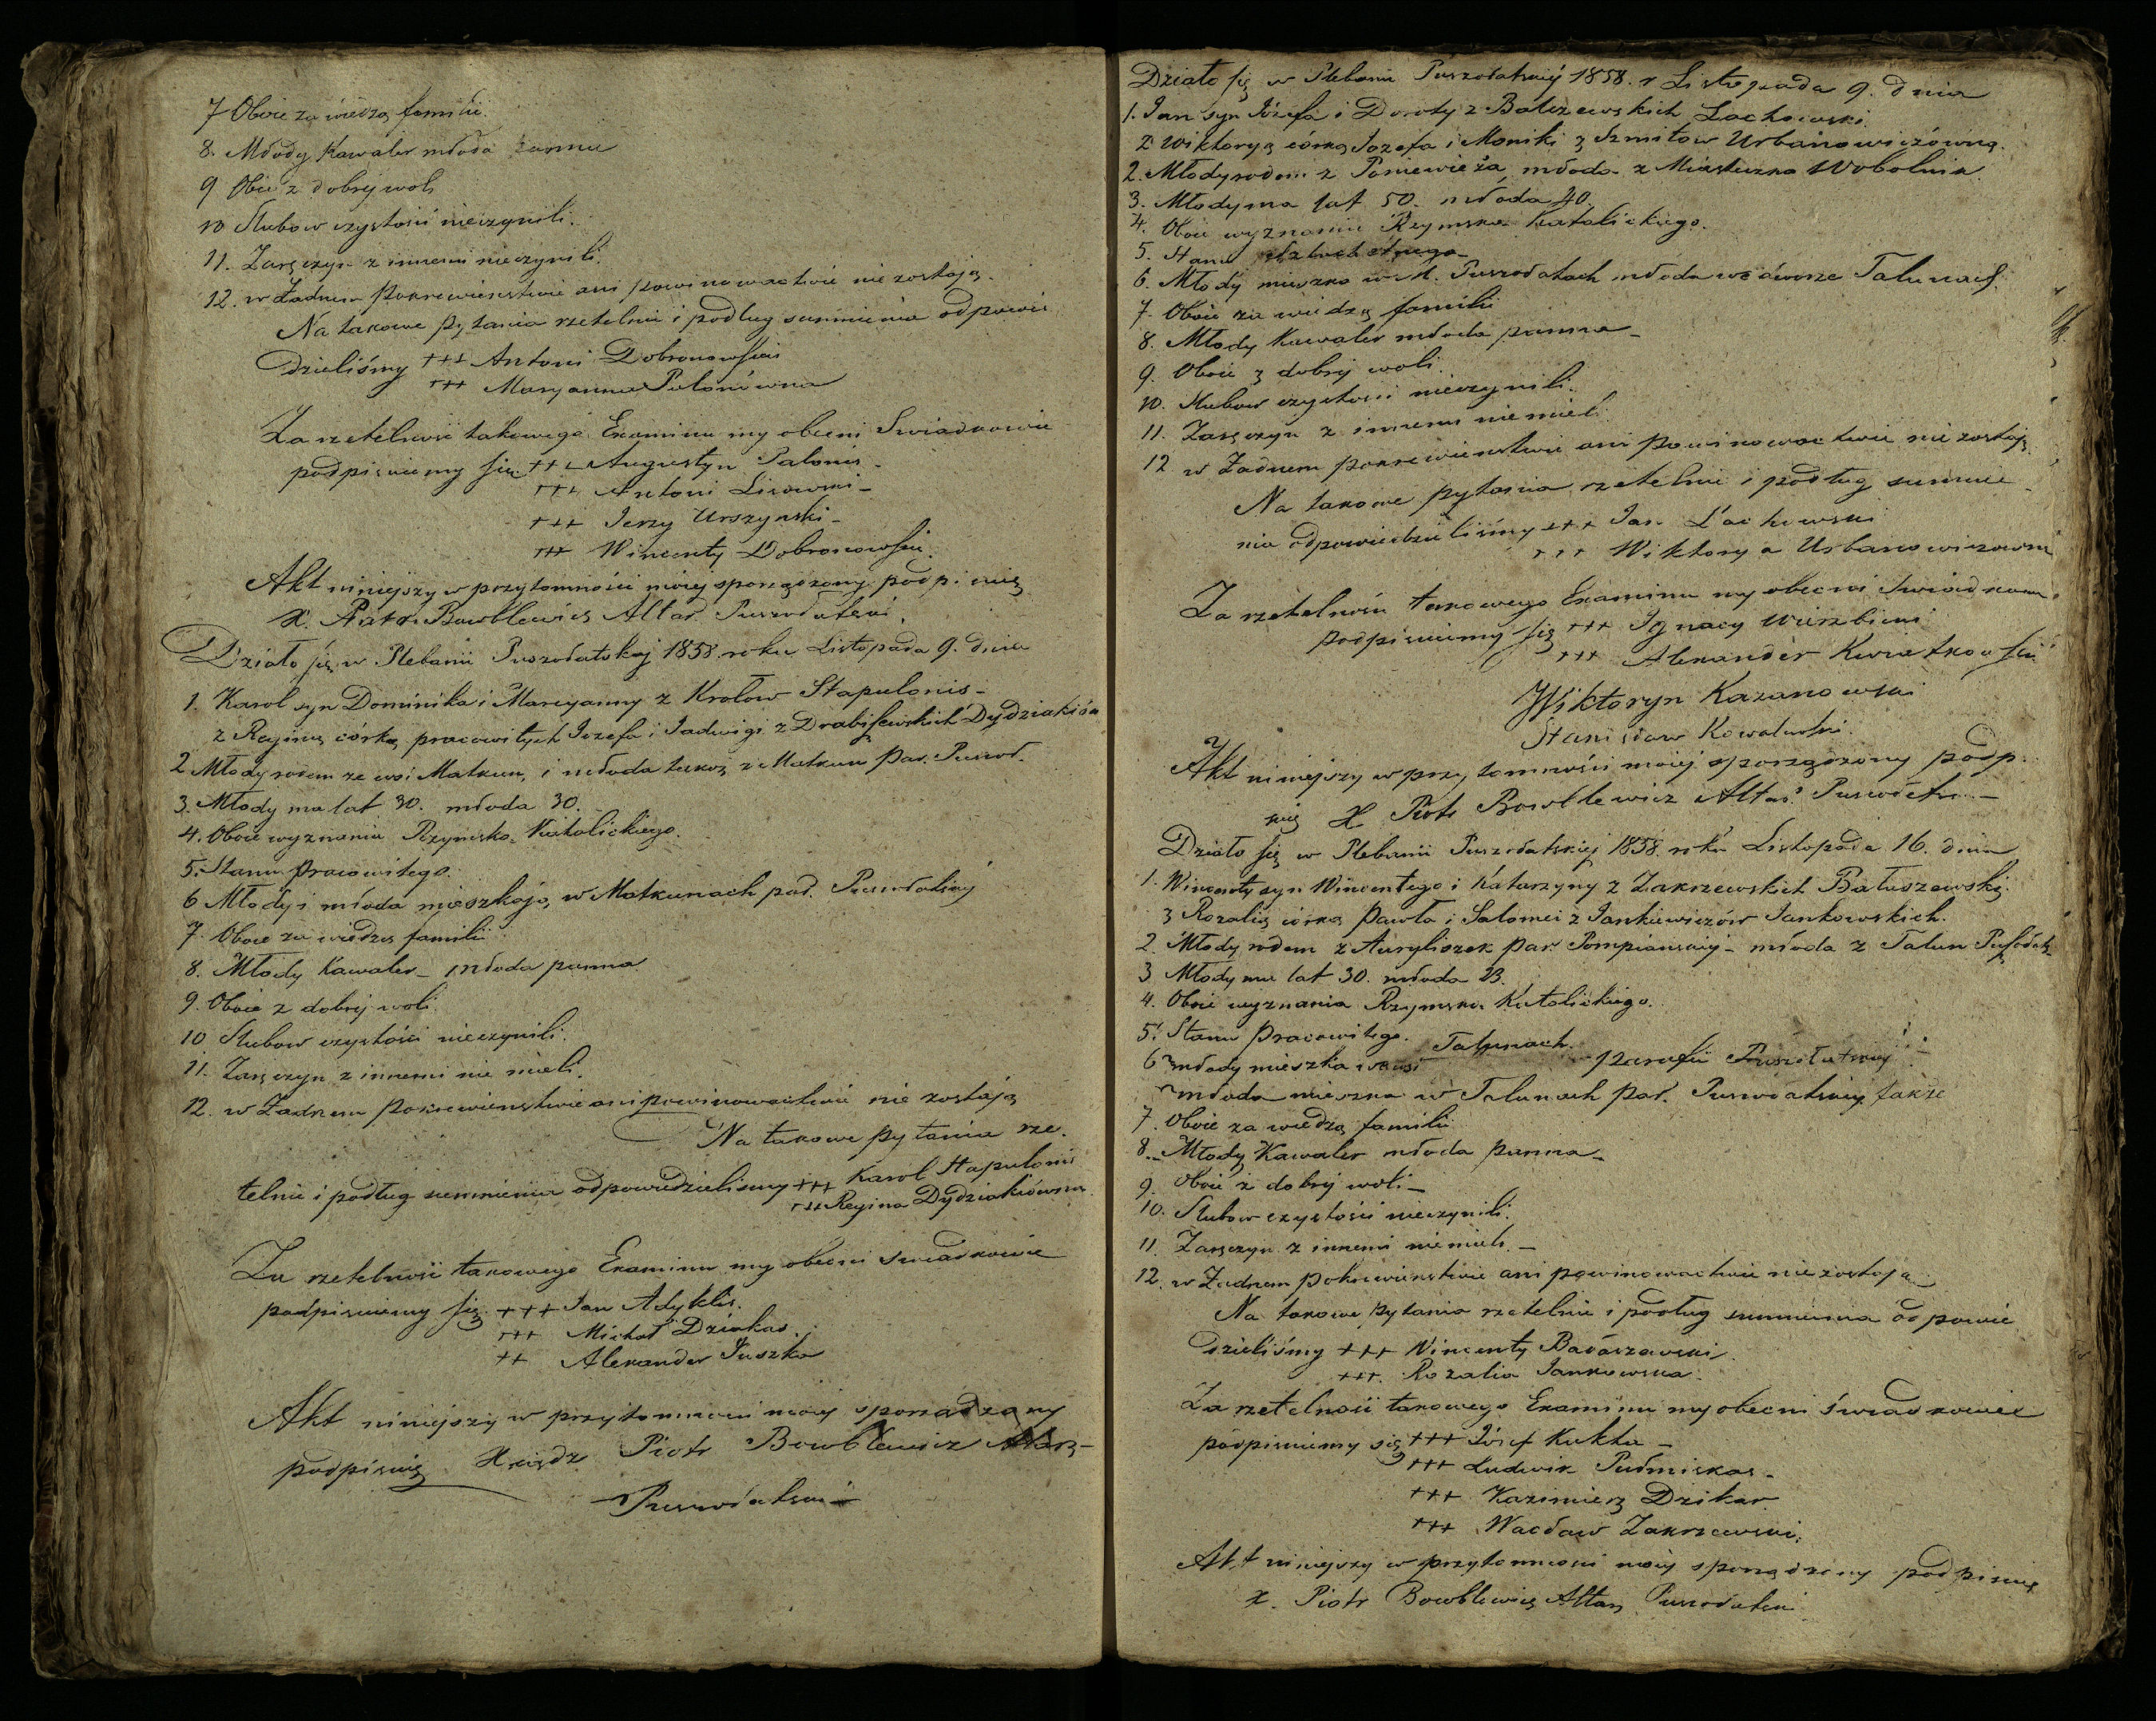 7 Oboie za wiedzą familii.
8. Młody Kawaler młoda panna
9 Oboie z dobrej woli
10 Slubow czystości nieczynili.
11. Zaręczyn z innemi nieczynili.
12. w Żadnem pokrewieństwie ani powinowactwie nie zostają.
Na takowe pytania rzetelnie i podług sumnienia odpowie
dzieliśmy +++ Antoni Dobronowski
+++ Maryanna Palonówna
Za rzetelność takowego Examinu my obecni Swiadkowie
podpisuiemy się +++ Augustyn Palonis.
+++ Antoni Lisowski -
+++ Jerzy Urszynski -
+++ Wincenty Dobronowski.
Akt niniejszy w przytomności mojej sporządzony podpisuię
X. Piotr Bowblewicz Altar. Puszołatski.
Działo się w Plebanii Puszołatskiej 1858. roku Listopada 9. dnia
1. Karol syn Dominika i Maryanny z Krolow Stapulonis -
z Reginą córką pracowitych Jozefa i Jadwigi z Drabiszewskich Dydziakiów
2 Młody rodem ze wsi Matkun, i młoda takoż z Matkun par. Puszoł.
3. Młody ma lat 30. młoda 30.
4. Oboie wyznania Rzymsko-Katolickiego.
5. Stanu pracowitego.
6 Młody i młoda mieszkają w Matkunach par. Puszołatskiej
7. Oboie za wiedzą familii
8. Młody Kawaler - młoda panna
9. Oboie z dobrej woli.
10 Slubow czystości nieczynili.
11. Zaręczyn z innemi nie mieli.
12. w Żadnem pokrewienstwie ani powinowactwie nie zostają
Na takowe pytania rze-
telnie i podług sumnienia odpowiedzielismy +++ Karol Stapulonis
+++ Regina Dydziakiówna.
Za rzetelność takowego Examinu my obecni swiadkowie
podpisuiemy się. +++ Jan Adyklis.
+++ Michał Dziakas.
++ Alexander Juszka
Akt niniejszy w przytomności mojej sporzadzany
podpisuię Xsiądz Piotr Bowblewicz Altarz-
Puszołatski
Działo się w Plebanii Puszołatskiej 1858. r Listopada 9. dnia
1. Jan syn Józefa i Doroty z Balczewskich Lachowski.
z Wiktoryą córką Jozefa i Moniki z Szmitow Urbanowiczówną.
2. Młody rodem z Poniewieża, młoda z Miasteczka Wobolnik.
3. Młody ma lat 50. młoda 40.
4. Oboie wyznania Rzymsko Katolickiego.
5. Stanu szlachetnego -
6. Młody mieszka w M. Puszołatach młoda we dworze Talunach.
7. Oboie za wiedzą familii
8. Młody Kawaler młoda panna -
9. Oboie z dobrej woli.
10. Slubow czystości nieczynili.
11. Zaręczyn z innemi nie mieli
12 w Żadnem pokrewienstwie ani powinowactwie nie zostają.
Na takowe pytania rzetelnie i podług sumnie-
nia odpowiedzieliśmy +++ Jan Lachowski
+++ Wiktorya Urbanowiczowna
Za rzetelność takowego Examinu my obecni swiadkowie
podpisuiemy się +++ Ignacy Wierzbicki
+++ Alexander Kwiatkowski
Wiktoryn Kazanowski
Stanisław Kowalewski.
Akt niniejszy w przytomności mojej sporządzony podp.
suię X Piotr Bowblewicz Altar. Puszołatski -
Działo się w Plebanii Puszołatskiej 1858. roku Listopada 16. dnia
1. Wincenty syn Wincentego i Katarzyny z Zakrzewskich Bałaszewski.
z Rozalią córką Pawła i Salomei z Jankiewiczów Jankowskich.
2. Młody rodem z Auryliszek par. Pompianskiej - młoda z Talun Puszołats.
3 Młody ma lat 30. młoda 23.
4. Oboie wyznania Rzymsko Katolickiego.
5. Stanu pracowitego.
6 młody mieszka w wsi Talunach parafii Puszołatskiej
młoda mieszka w Talunach par. Puszołatskiej także
7. Oboie za wiedzą familii
8. Młody Kawaler młoda panna -
9. Oboie z dobrej woli -
10. Slubow czystości nieczynili.
11. Zaręczyn z innemi nie mieli. -
12. w Żadnem pokrewienstwie ani powinowactwie nie zostają
Na takowe pytania rzetelnie i podług sumnienia odpowie
dzieliśmy +++ Wincenty Bałaszewski.
+++. Rozalia Jankowska.
Za rzetelność takowego Examinu my obecni świadkowie
podpisuiemy się +++ Józef Kukta -
+++ Ludwik Pudmiskas -
+++ Kazimierz Dzikas
+++ Wacław Zakrzewski.
Akt niniejszy w przytomności mojej sporządzony podpisuię
X. Piotr Bowblewicz Altarz Puszołatski